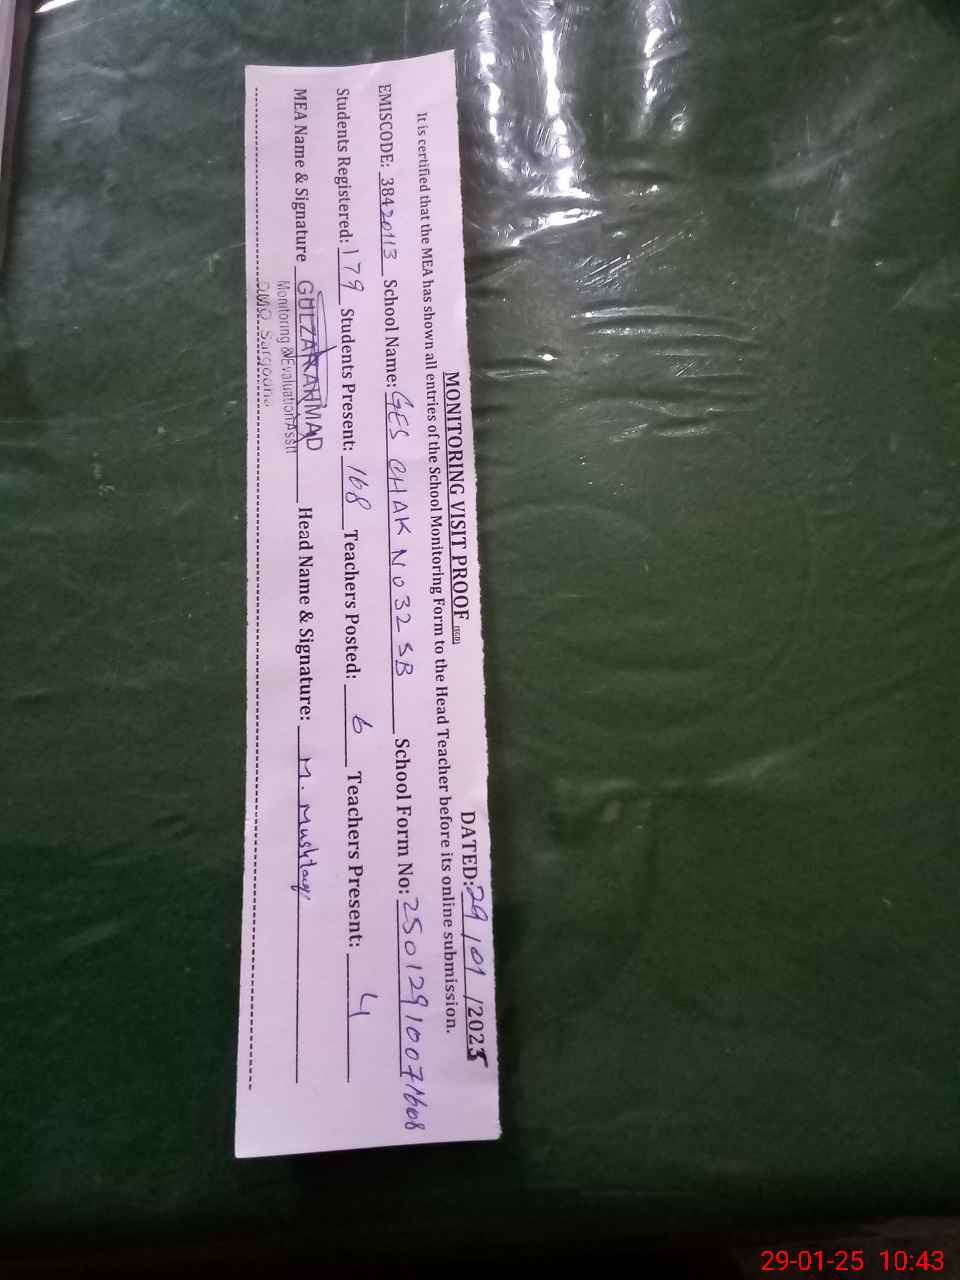 MONITORING VISIT PROOF (SGD)
DATED: 29/01/2025
It is certified that the MEA has shown all entries of the School Monitoring Form to the Head Teacher before its online submission.
EMISCODE: 38420113 School Name: GES CHAK NO 32 SB School Form No: 25012910071608
Students Registered: 179 Students Present: 168 Teachers Posted: 6 Teachers Present: 4
MEA Name & Signature GULZAR AHMAD Head Name & Signature: M. Mushtaq
Monitoring & Evaluation Asstt
DMO Sargodha
29-01-25 10:43